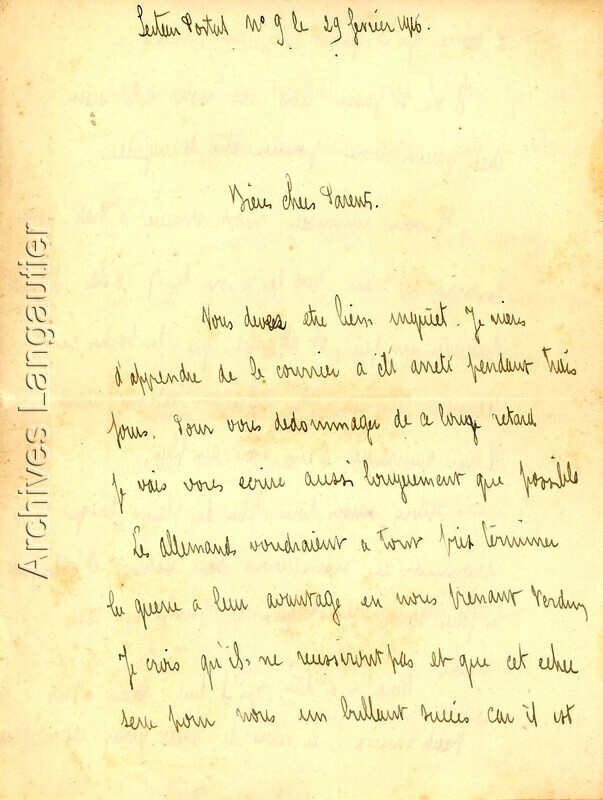 Secteur Postal N° 9 le 29 février 1916.
Biens chers Parents.
Vous devez etre bien inquiet. Je viens
d'apprendre de le courrier a été arreté pendant trois
jours. Pour vous dedommager de ce longe retard
je vais vous ecrire aussi longuement que possible
Les Allemands voudraient a tout prix terminer
la guerre a leur avantage en nous prenant Verdun
Je crois qu'ils ne reussiront pas et que cet echec
sera pour nous un brillant succés car il est
Archives Langautier